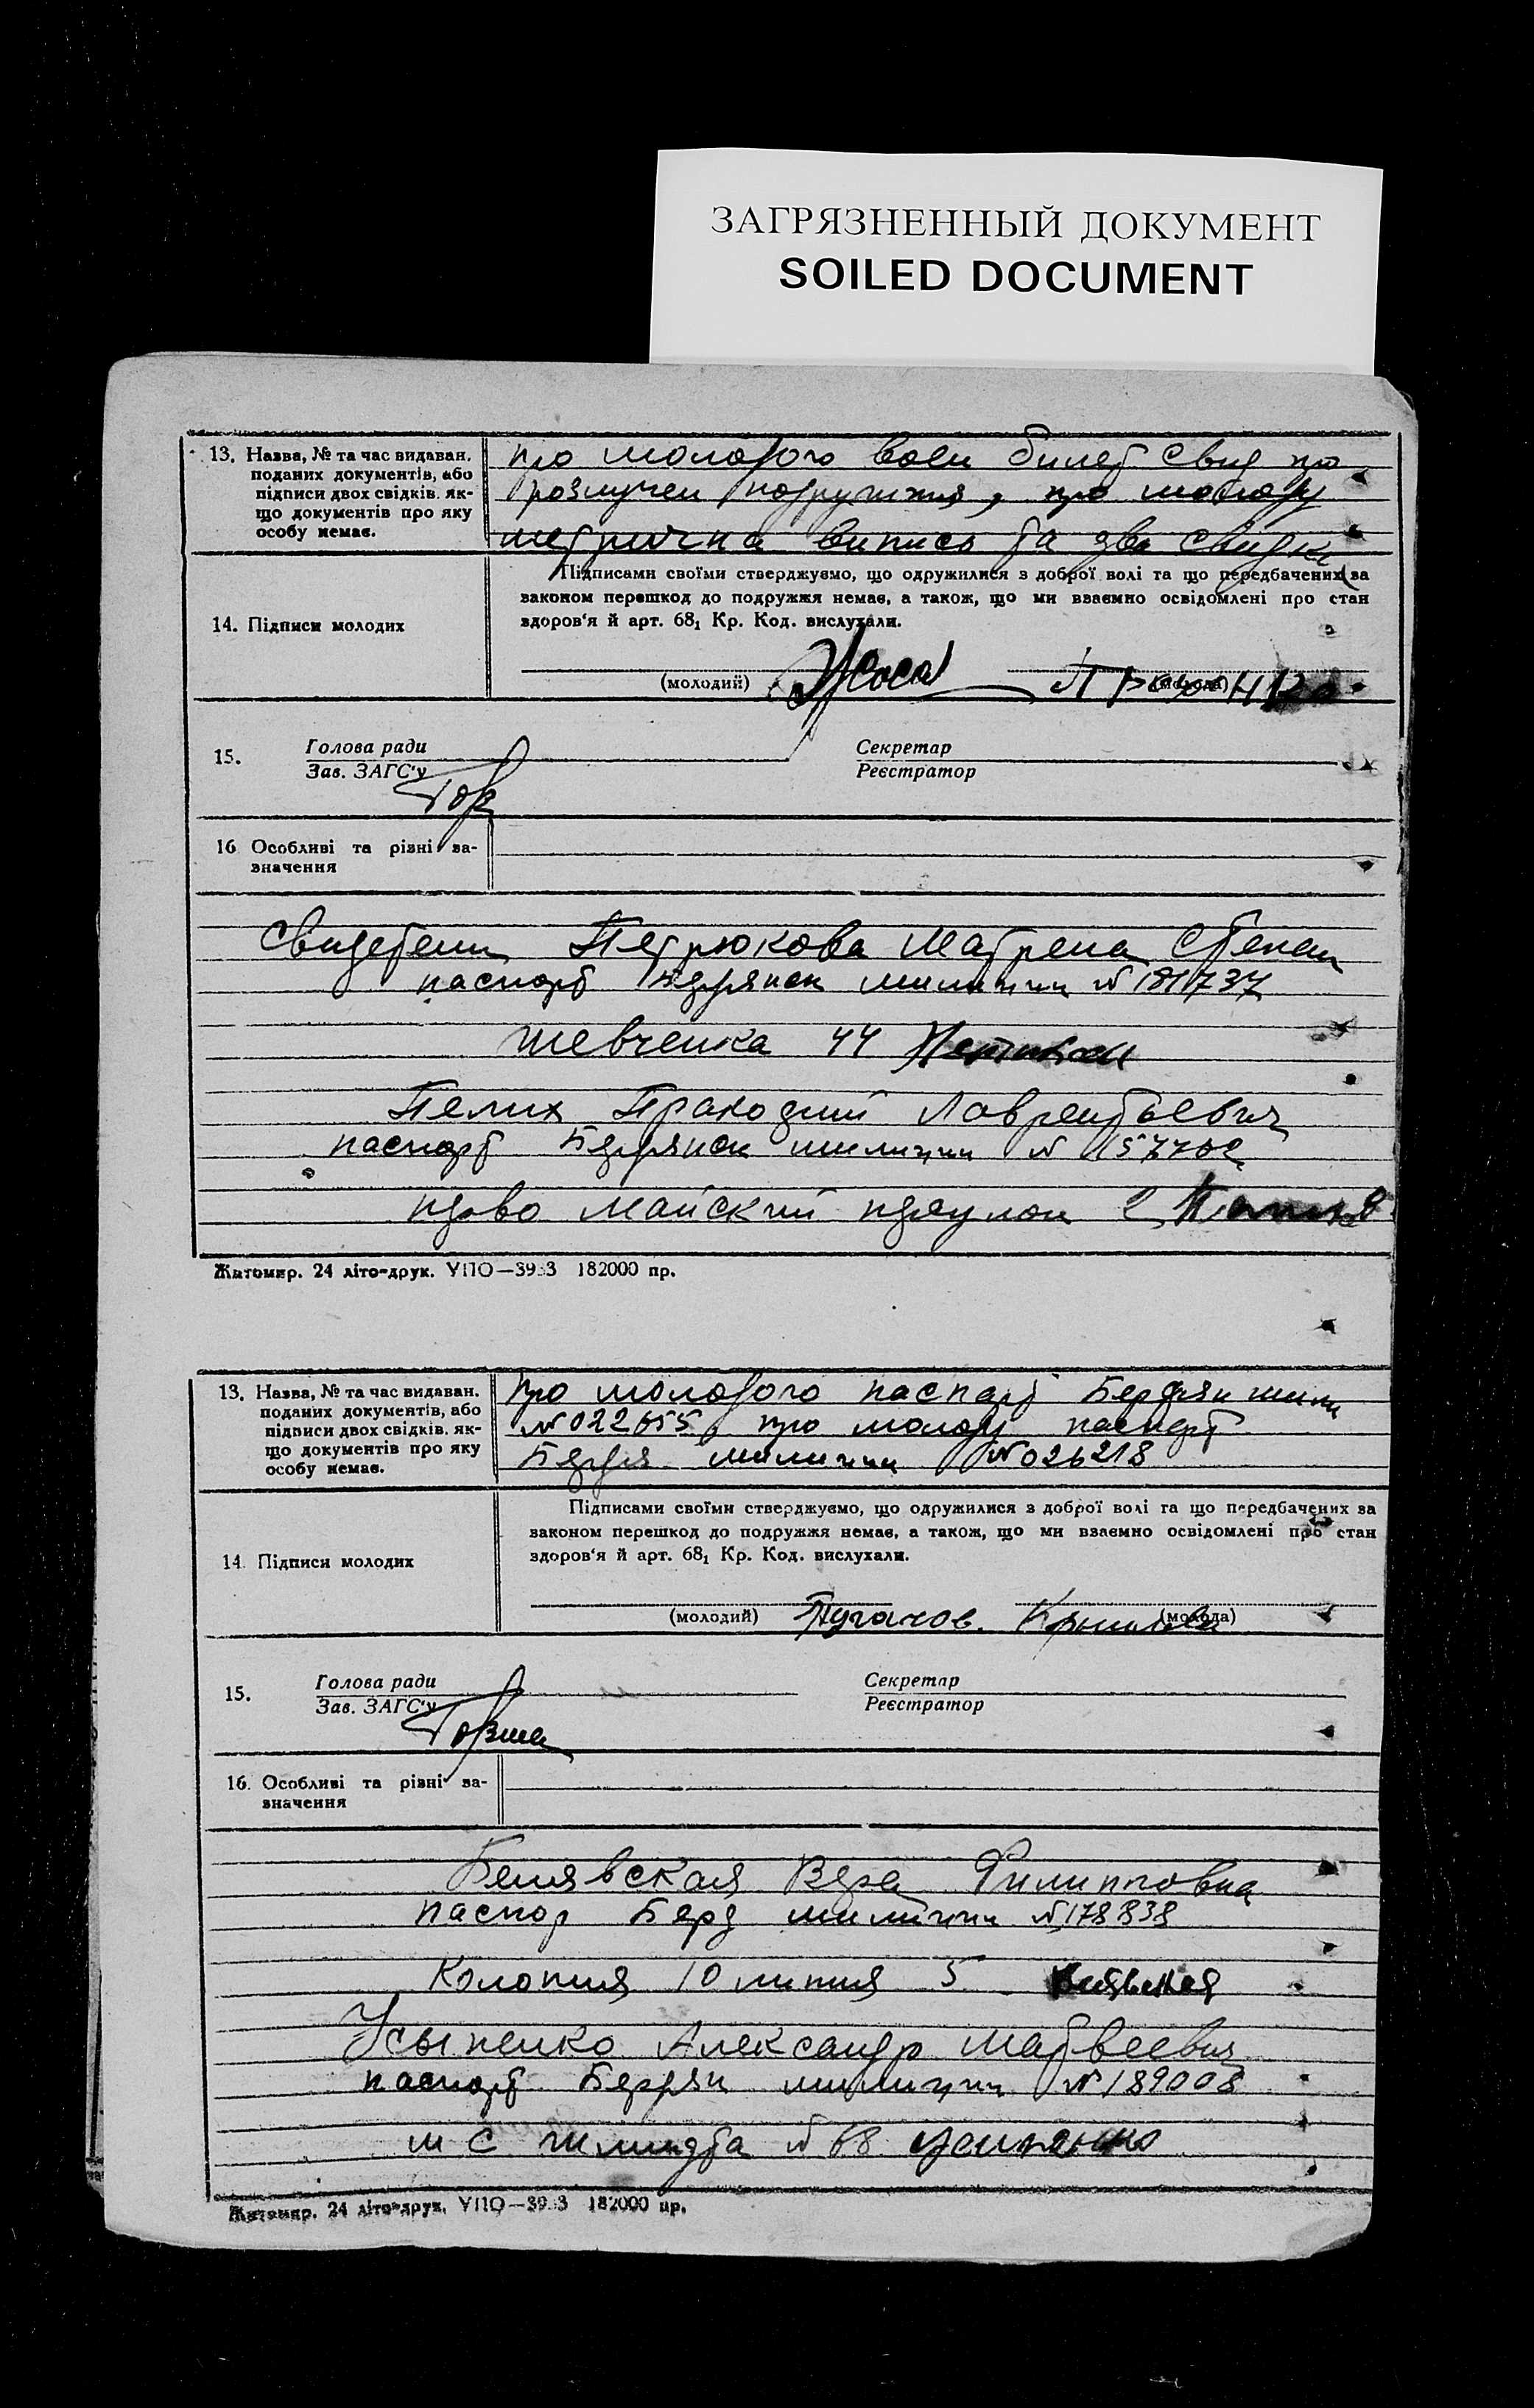 ЗАГРЯЗНЕННЫЙ ДОКУМЕНТ
SOILED DOCUMENT
13. Назва, № та час видаван.
поданих документів, або
підписи двох свідків, як-
що документів про яку
особу немає.
про молодого воен билет свид про
розлучен подружжя, про молоду
метрична випись та два свидки
14. Підписи молодих
Підписами своїми стверджуємо, що одружилися з доброї волі та що передбачених за
законом перешкод до подружжя немає, а також, що ми взаємно освідомлені про стан
здоров'я й арт. 68₁ Кр. Код. вислухали.
(молодий) (молода)
15. Голова ради
Зав. ЗАГС'у
Секретар
Реєстратор
16 Особливі та різні за-
значення
Свидетели Петрюкова Матрена Степан
паспорт Бердянск милиции № 181737
Шевченка 44
Пелих Лаврентьевич
паспорт Бердянск милиции №
Майский 2
Житомир. 24 літо-друк. УПО—39 3 182000 пр.
13. Назва, № та час видаван.
поданих документів, або
підписи двох свідків, як-
що документів про яку
особу немає.
про молодого паспорт Бердян мили
№ 022655 про молоду паспорт
Бердя милиции № 026218
14. Підписи молодих
Підписами своїми стверджуємо, що одружилися з доброї волі та що передбачених за
законом перешкод до подружжя немає, а також, що ми взаємно освідомлені про стан
здоров'я й арт. 68₁ Кр. Код. вислухали.
(молодий) Пугачов. Крылова (молода)
15. Голова ради
Зав. ЗАГС'у
Секретар
Реєстратор
16. Особливі та різні за-
значення
Белявская Вера Филипповна
паспор Берд милиции № 178838
Колония 10 линия 5
Усыпенко Александр Матвеевич
паспорт Бердян милиции № 189008
№ 68
Житомир. 24 літо-друк. УПО—39 3 182000 пр.